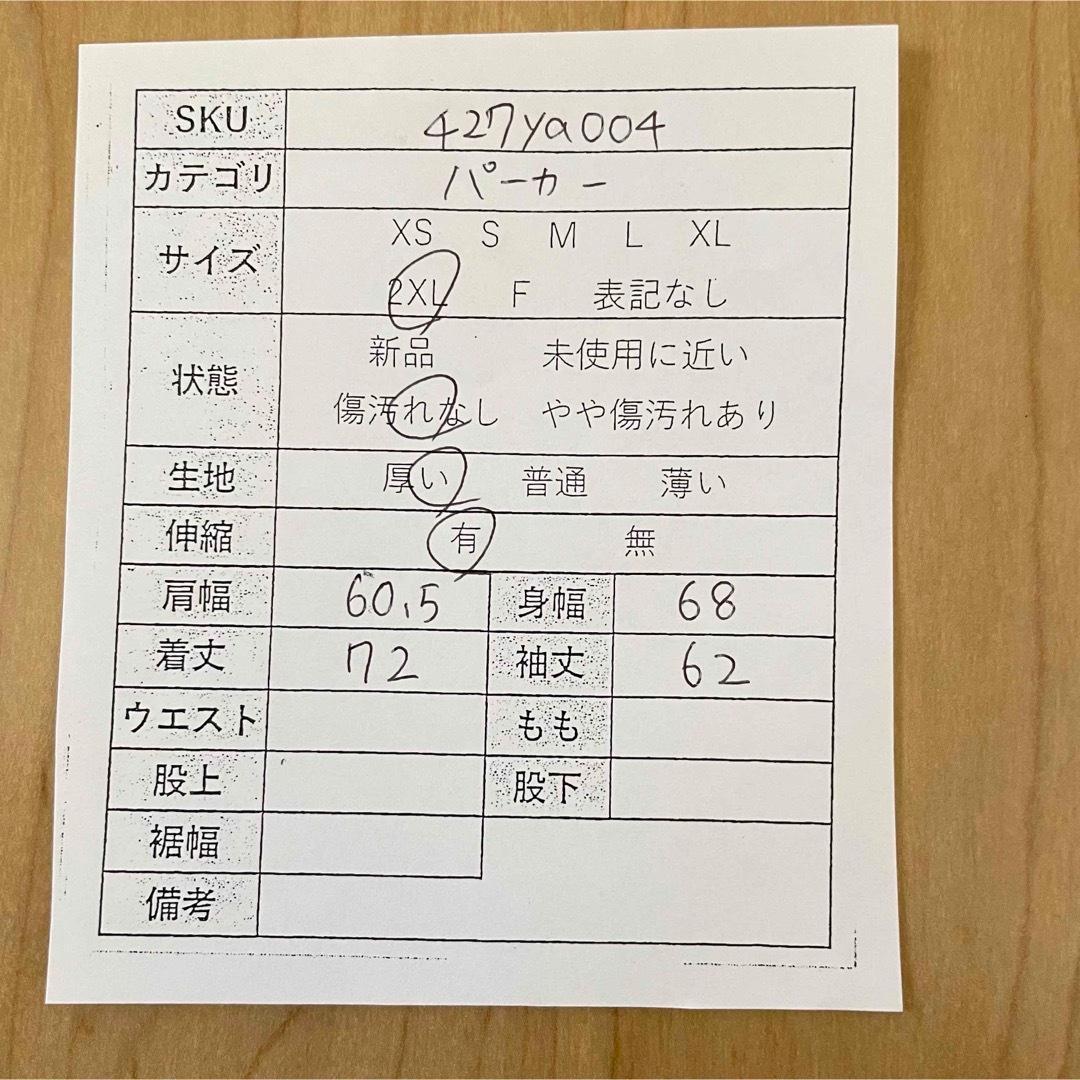 SKU 427ya004
カテゴリ パーカー
サイズ XS S M L XL
2XL F 表記なし
状態 新品 未使用に近い
傷汚れなし やや傷汚れあり
生地 厚い 普通 薄い
伸縮 有 無
肩幅 60.5 身幅 68
着丈 72 袖丈 62
ウエスト もも
股上 股下
裾幅
備考